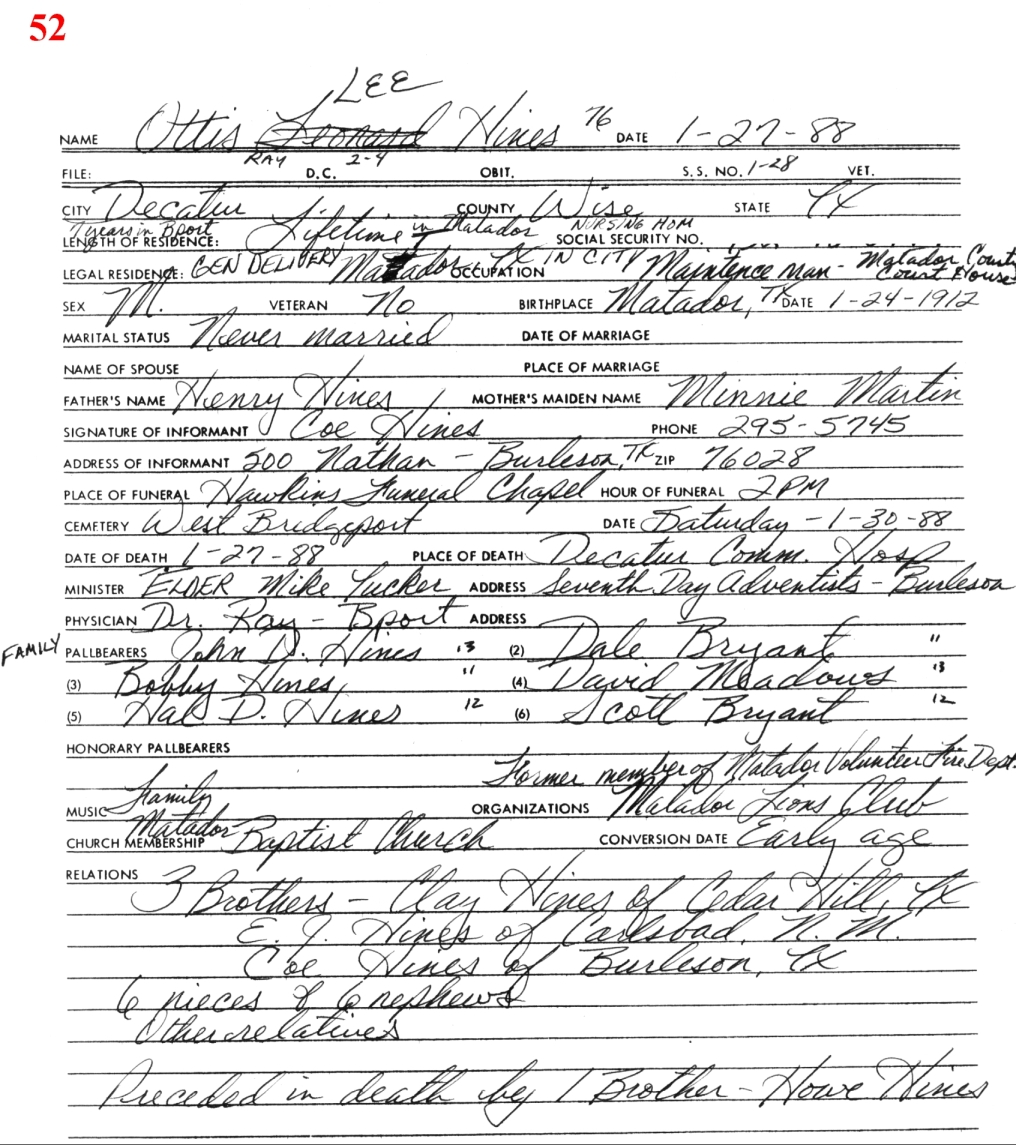 52
LEE
NAME Ottis Leonard Hines 76 DATE 1-27-88
RAY 2-4
FILE: D.C. OBIT. S.S. NO. 1-28 VET.
CITY Decatur COUNTY Wise STATE TX
7 years in Bport NURSING HOM
LENGTH OF RESIDENCE: Lifetime in Matador SOCIAL SECURITY NO.
LEGAL RESIDENCE: GEN DELIVERY Matador, TX IN CITY OCCUPATION Maintence man - Matador County Court House
SEX M. VETERAN No BIRTHPLACE Matador, TX DATE 1-24-1912
MARITAL STATUS Never married DATE OF MARRIAGE
NAME OF SPOUSE PLACE OF MARRIAGE
FATHER'S NAME Henry Hines MOTHER'S MAIDEN NAME Minnie Martin
SIGNATURE OF INFORMANT Coe Hines PHONE 295-5745
ADDRESS OF INFORMANT 500 Nathan - Burleson, TX ZIP 76028
PLACE OF FUNERAL Hawkins Funeral Chapel HOUR OF FUNERAL 2 PM
CEMETERY West Bridgeport DATE Saturday - 1-30-88
DATE OF DEATH 1-27-88 PLACE OF DEATH Decatur Comm. Hosp
MINISTER ELDER Mike Tucker ADDRESS Seventh Day Adventists - Burleson
PHYSICIAN Dr. Ray - Bport ADDRESS
FAMILY
PALLBEARERS John D. Hines 13 (2) Dale Bryant 11
(3) Bobby Hines 11 (4) David Meadows 13
(5) Hal D. Hines 12 (6) Scott Bryant 12
HONORARY PALLBEARERS
Former member of Matador Volunteer Fire Dept.
MUSIC Family ORGANIZATIONS Matador Lions Club
CHURCH MEMBERSHIP Matador Baptist Church CONVERSION DATE Early age
RELATIONS 3 Brothers - Clay Hines of Cedar Hill, TX
E. J. Hines of Carlsbad, N. M.
Coe Hines of Burleson, TX
6 nieces & 6 nephews
Other relatives
Preceded in death by 1 Brother - Howe Hines